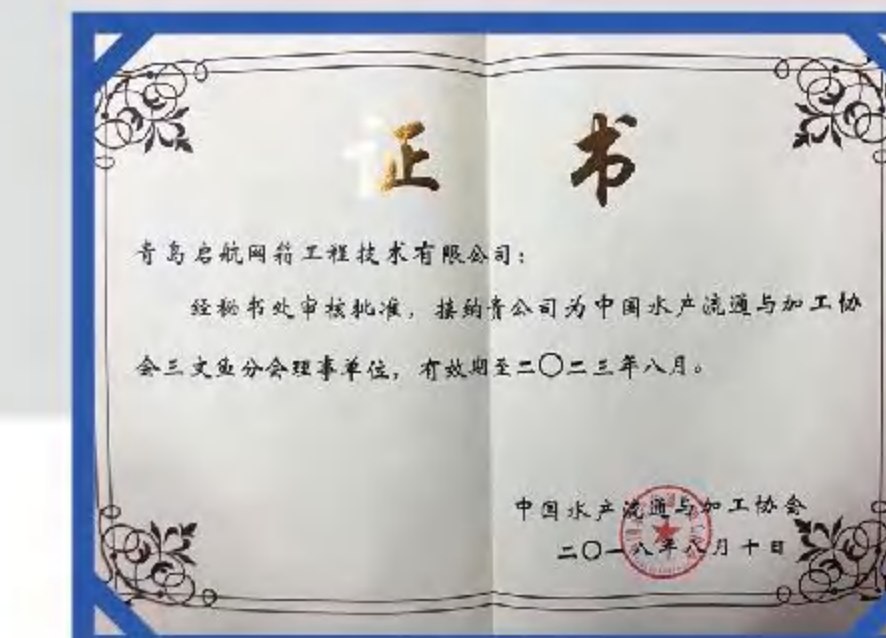 证 书
青岛启航网箱工程技术有限公司：
经秘书处审核批准，接纳贵公司为中国水产流通与加工协
会三文鱼分会理事单位，有效期至二〇二三年八月。
中国水产流通与加工协会
二〇一八年八月十日